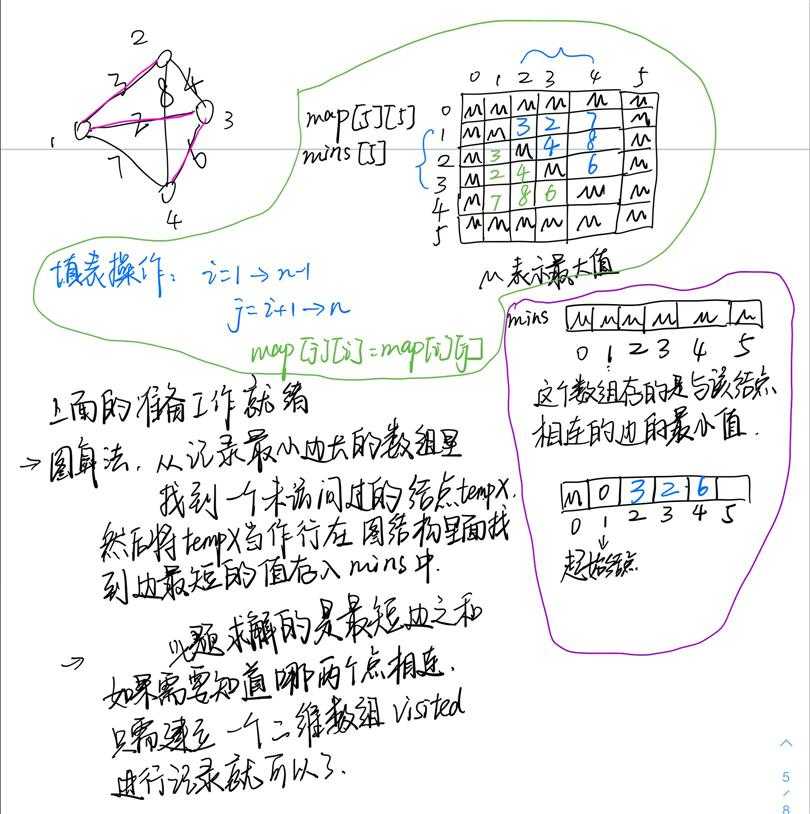 2
3
8
4
1
2
3
7
6
4
0 1 2 3 4 5
map[5][5]
mins[5]
0 M M M M M M
1 M M 3 2 7 M
2 M 3 M 4 8 M
3 M 2 4 M 6 M
4 M 7 8 6 M M
5 M M M M M M
M 表示最大值
填表操作: i=1→n-1
j=i+1→n
map[j][i]=map[i][j]
mins M M M M M M
0 1 2 3 4 5
这个数组存的是与该结点
相连的边的最小值.
M 0 3 2 6
0 1 2 3 4 5
起始结点
上面的准备工作就绪
→图算法. 从记录最小边长的数组里
找到一个未访问过的结点tempX.
然后将tempX当作行在图结构里面找
到边最短的值存入mins中.
→ 题求解的是最短边之和
如果需要知道哪两个点相连.
只需建立一个二维数组visited
进行记录就可以了.
5/8